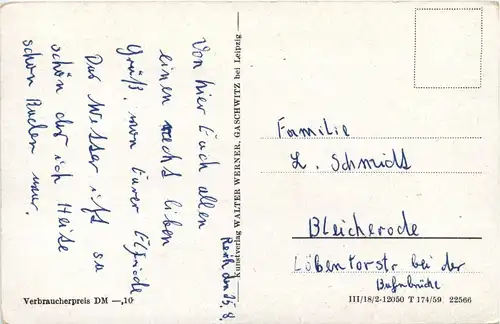 Von hier Euch allen
einen recht lieben
Gruß, von Eurer Elfriede
Das Wetter ist so
schön
schon Baden
Kunstverlag WALTER WERNER, GASCHWITZ bei Leipzig
Familie
L. Schmidt
Bleicherode
Löbentorstr bei der
Bahnbrücke
Verbraucherpreis DM —,10
III/18/2-12050 T 174/59 22566